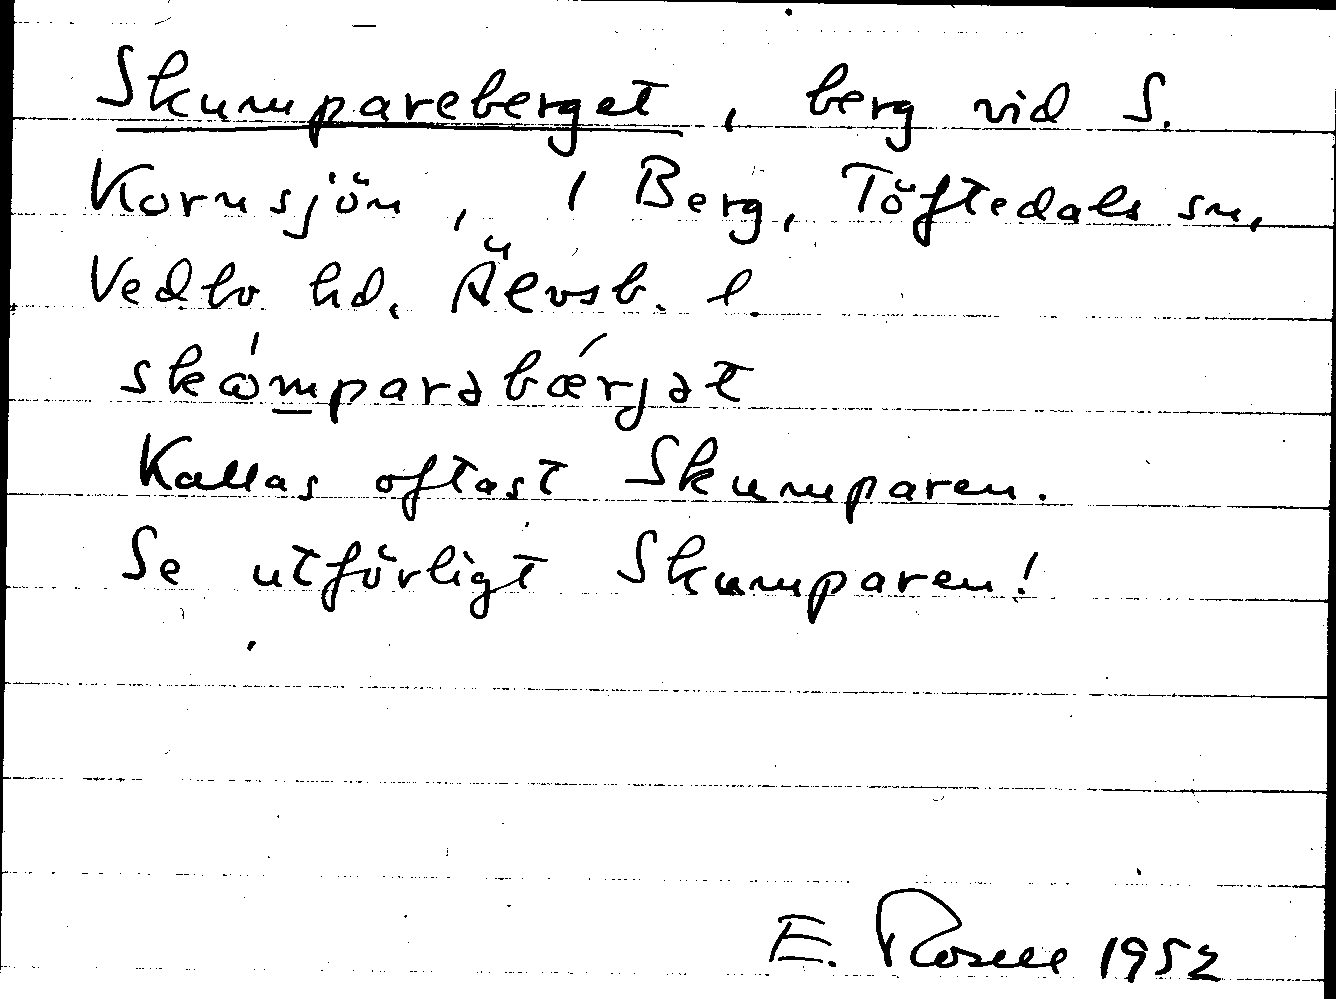 Skumpareberget, berg vid S.
Kornsjön, 1 Berg, Töftedals sn,
Vedbo hd, Älvsb. l.
skómparəbǽrjət
Kallas oftast Skumparen.
Se utförligt Skumparen!
E. Rosell 1952